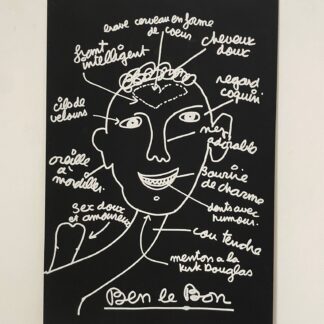 grave cerveau en forme
de coeur
cheveux
doux
front
intelligent
regard
coquin
cils de
velours
nez
adorable
oreille
à
mordiller
sourire
de charme
dents avec
humour.
sex doux
et amoureux
cou tendre
menton à la
Kirk Douglas
Ben le Bon